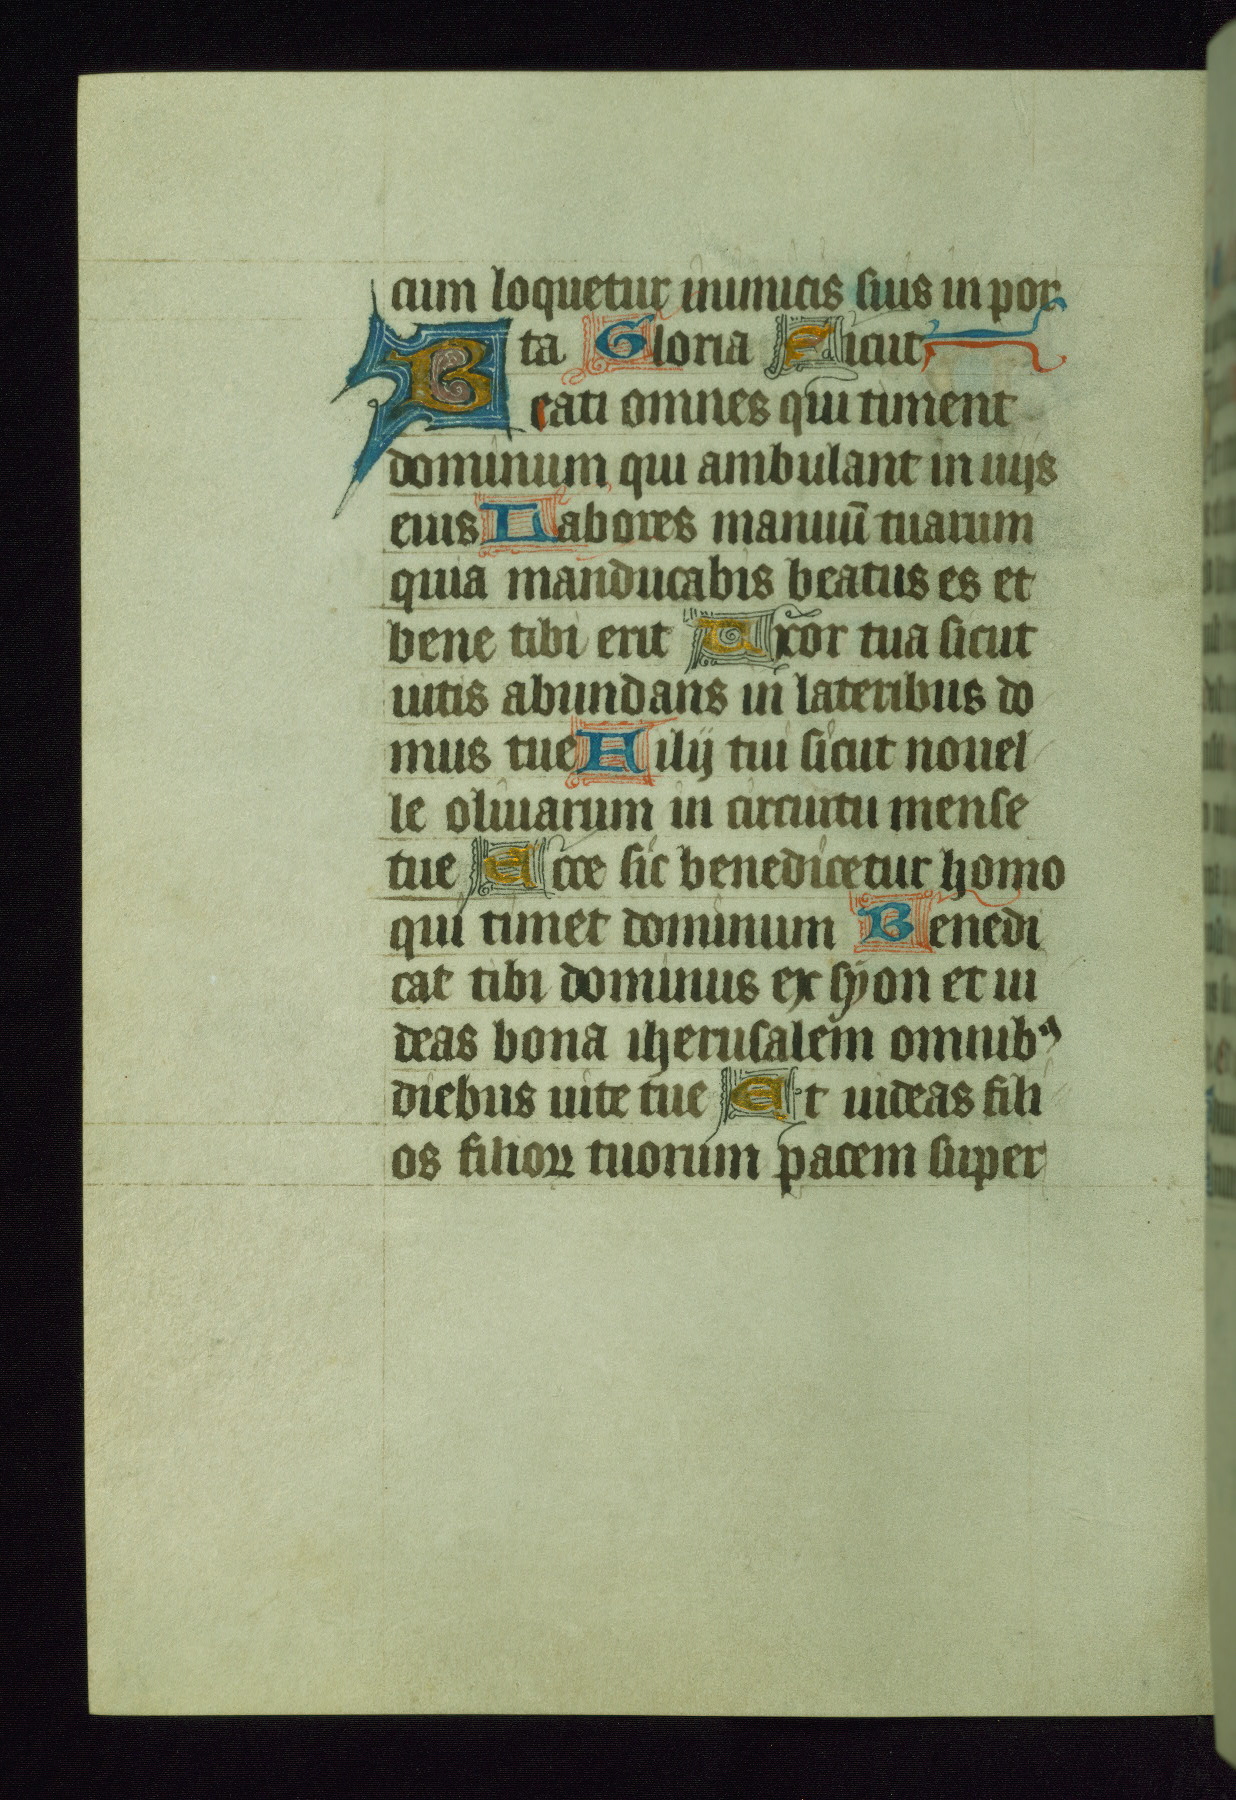 cum loquetur inimicis suis in por
ta Gloria Sicut
Beati omnes qui timent
dominum qui ambulant in uijs
eius Labores manuū tuarum
quia manducabis beatus es et
bene tibi erit Uxor tua sicut
uitis abundans in lateribus do
mus tue Filij tui sicut nouel
le oliuarum in circuitu mense
tue Ecce sic benedicetur homo
qui timet dominum Benedi
cat tibi dominus ex syon et ui
deas bona iherusalem omnibꝰ
diebus uite tue Et uideas fili
os filioꝝ tuorum pacem super